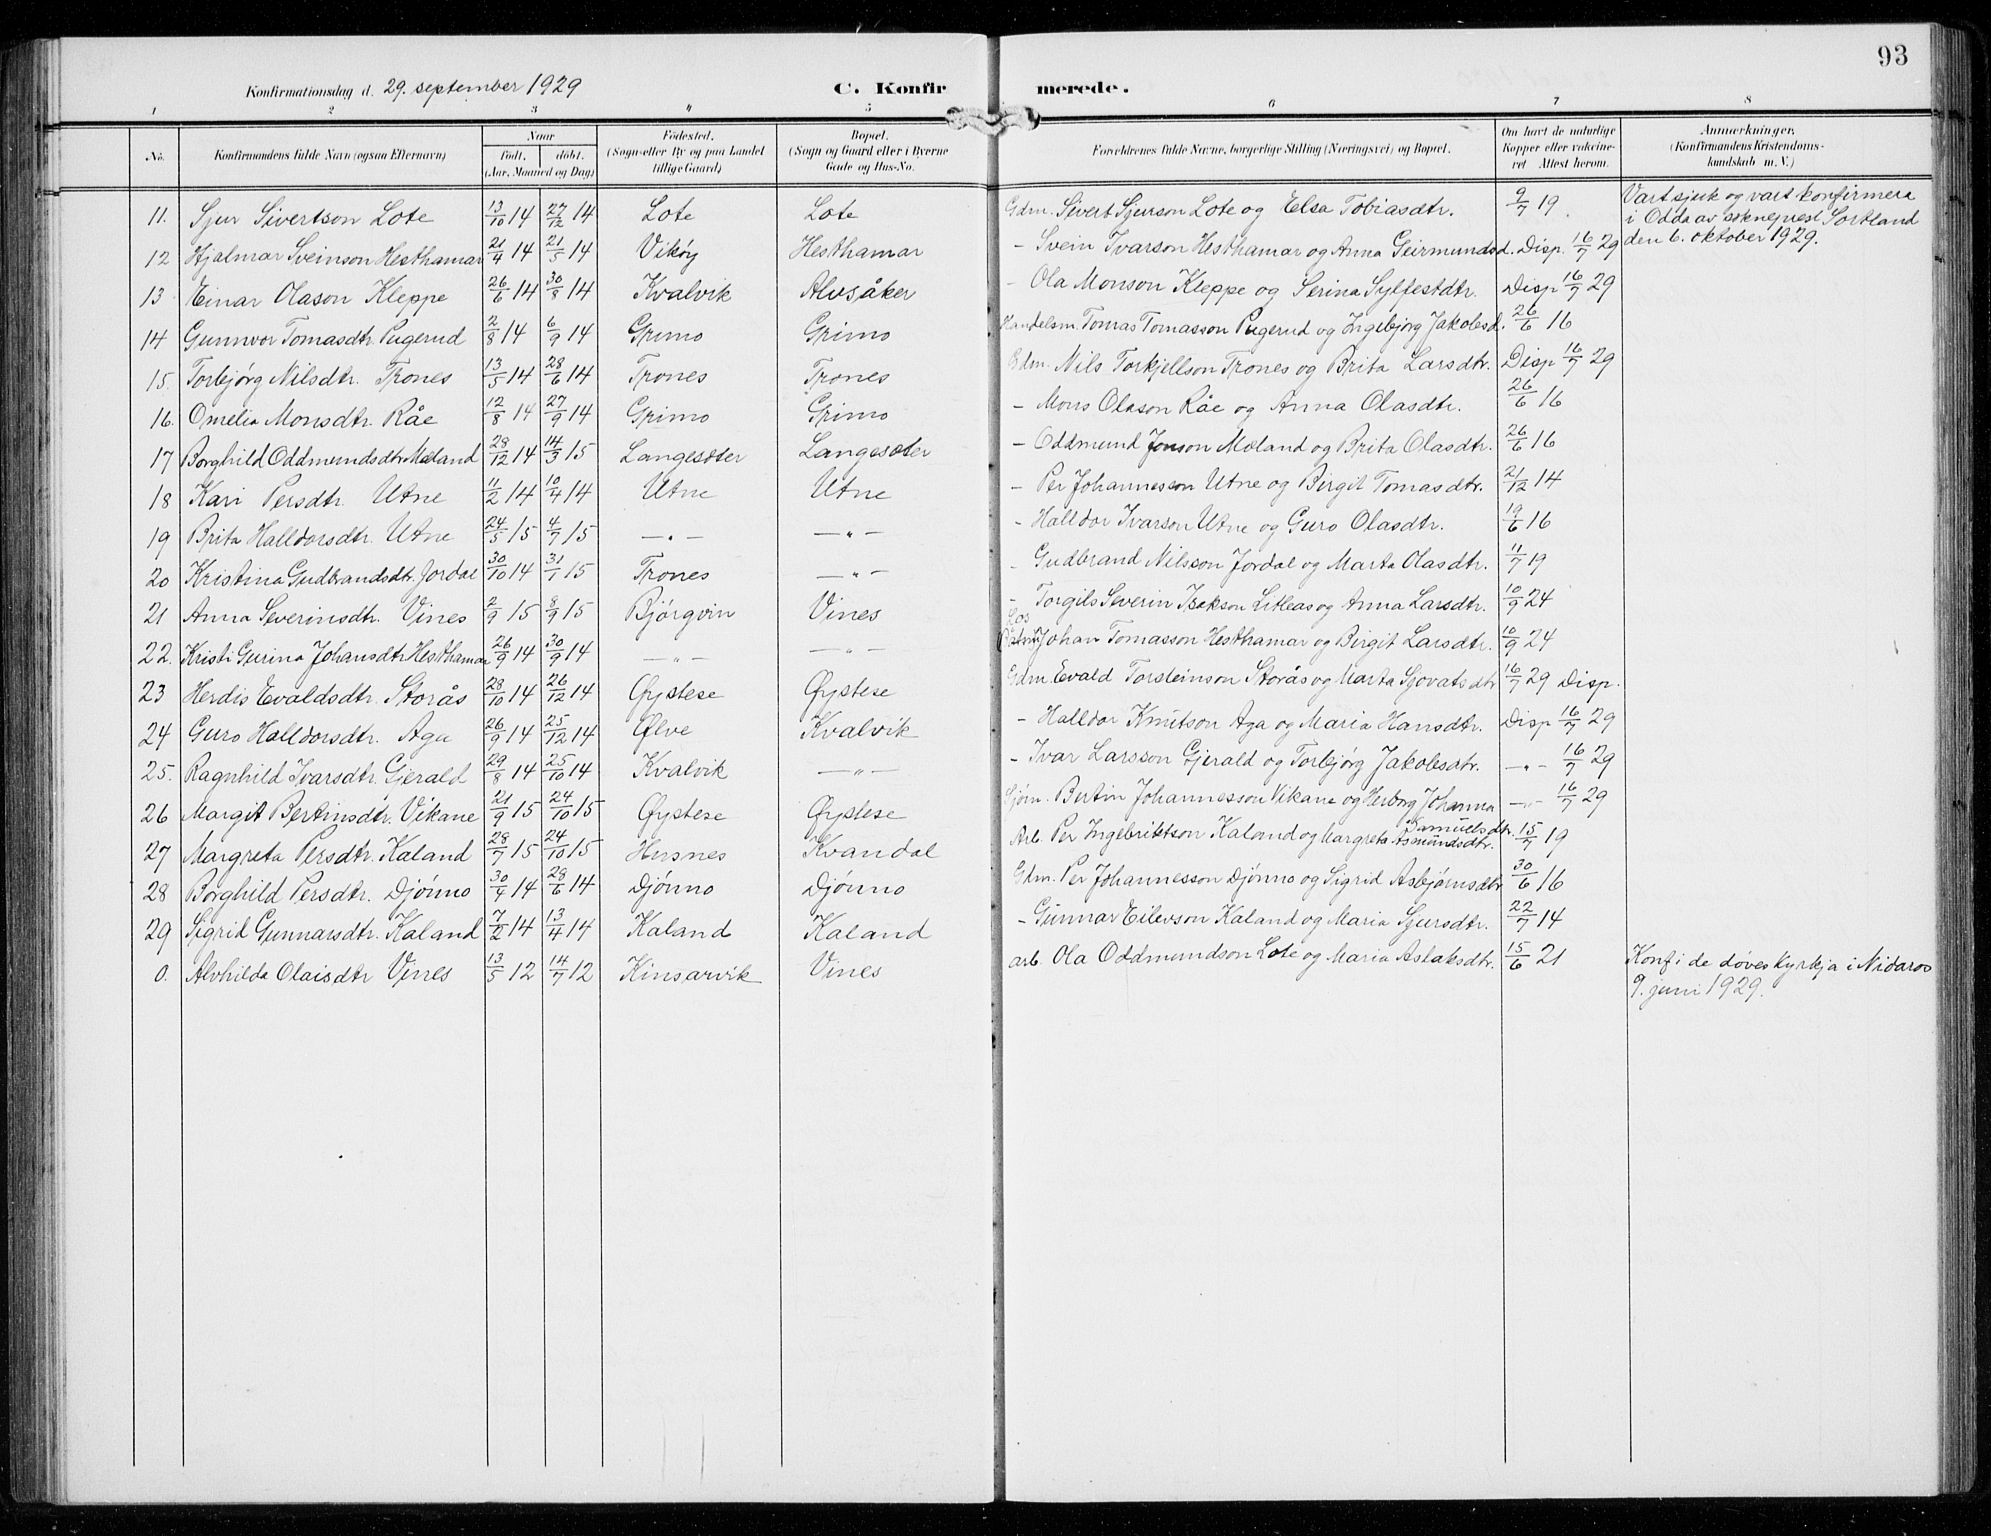 93
Konfirmationsdag d. 29. september 1929 C. Konfirmerede.
1 2 3 4 5 6 7 8
No. Konfirmandens fulde Navn (ogsaa Efternavn) Naar født, døbt. (Aar, Maaned og Dag) Fødested. (Sogn eller By og paa Landet tillige Gaard) Bopæl. (Sogn og Gaard eller i Byerne Gade og Hus-No. Forældrenes fulde Navne, borgerlige Stilling (Næringsvei) og Bopæl. Om havt de naturlige Kopper eller vakcineret Attest herom. Anmærkninger, (Konfirmandens Kristendomskundskab m. V.)
11. Sjur Sivertson Lote 13/10 14 27/12 14 Lote Lote Gdm. Sivert Sjurson Lote og Elsa Tobiasdtr. 9/7 19 Vart sjuk og vart konfirmera i Odda av sokneprest Sortland den 6. oktober 1929.
12 Hjalmar Sveinson Hesthamar 21/4 14 21/5 14 Vikøy Hesthamar - Svein Ivarson Hesthamar og Anna Geirmundsd. Disp. 16/7 29
13 Einar Olason Kleppe 26/6 14 30/8 14 Kvalvik Alvsåker - Ola Monson Kleppe og Serina Sylfestdtr. Disp 16/7 29
14 Gunnvor Tomasdtr. Pugerud 2/8 14 6/9 14 Grimo Grimo Handelsm. Tomas Tomasson Pugerud og Ingebjørg Jakobsd. 26/6 16
15. Torbjørg Nilsdtr. Trones 13/5 14 28/6 14 Trones Trones Gdm. Nils Torkjellson Trones og Brita Larsdtr. Disp 16/7 29
16. Omelia Monsdtr. Råe 12/8 14 27/9 14 Grimo Grimo - Mons Olason Råe og Anna Olasdtr. 26/6 16
17 Borghild Oddmundsdtr Mæland 28/12 14 14/3 15 Langesæter Langesæter - Oddmund Jonson Mæland og Brita Olasdtr. 26/6 16
18 Kari Persdtr Utne 11/2 14 10/4 14 Utne Utne - Per Johannesson Utne og Birgit Tomasdtr. 21/12 14
19 Brita Halldorsdtr. Utne 24/5 15 4/7 15 — " — — " — - Halldor Ivarson Utne og Guro Olasdtr. 19/6 16
20 Kristina Gudbrandsdtr. Jordal 30/10 14 31/1 15 Trones — " — - Gudbrand Nilsson Jordal og Marta Olasdtr. 11/7 19
21 Anna Severinsdtr. Vines 2/9 15 8/9 15 Bjørgvin Vines - Torgils Severin Isakson Litleas og Anna Larsdtr. 10/9 24
22. Kristi Gurina Johansdtr Hesthamar 26/9 14 30/9 14 — " — — " — Los Johan Tomasson Hesthamar og Birgit Larsdtr. 10/9 24
23 Herdis Evaldsdtr. Storås 28/10 14 26/12 14 Øystese Øystese Gdm. Evald Torsteinson Storås og Marta Sjovatsdtr 16/7 29 Disp.
24 Guro Halldorsdtr. Aga 26/9 14 25/12 14 Ølve Kvalvik - Halldor Knutson Aga og Maria Hansdtr. Disp 16/7 29
25. Ragnhild Ivarsdtr. Gjerald 29/8 14 25/10 14 Kvalvik — " — - Ivar Larsson Gjerald og Torbjørg Jakobsdtr. — " — 16/7 29
26 Margit Bertinsdtr. Vikane 21/9 15 24/10 15 Øystese Øystese Sjøm. Bertin Johannesson Vikane og Herborg Johanna Samuelsdtr. — " — 16/7 29
27 Margreta Persdtr. Kaland 28/7 15 24/10 15 Husnes Kvandal Arb. Per Ingebrittson Kaland og Margreta Asmundsdtr. 15/7 19
28 Borghild Persdtr. Djønno 30/4 14 28/6 14 Djønno Djønno Gdm. Per Johannesson Djønno og Sigrid Asbjørnsdtr 30/6 16
29 Sigrid Gunnarsdtr. Kaland 7/2 14 13/4 14 Kaland Kaland - Gunnar Eilevson Kaland og Maria Sjursdtr. 22/7 14
0. Alvhilda Olaisdtr Vines 13/5 12 14/7 12 Kinsarvik Vines arb. Ola Oddmundson Lote og Maria Aslaksdtr. 15/6 21 Konf i de døves kyrkja i Nidaros 9. juni 1929.